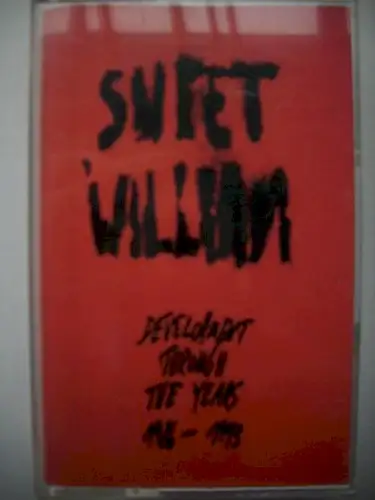 SWEET
WILLIAM
DEVELOPMENT
THROUGH
THE YEARS